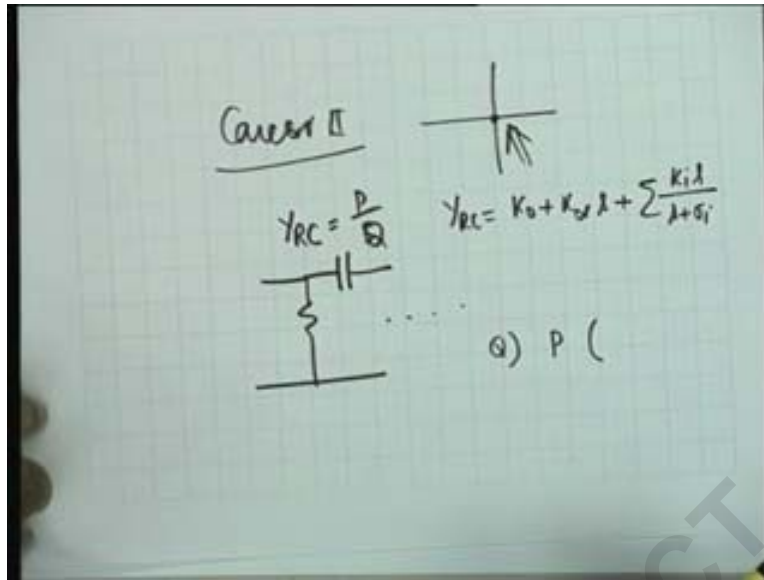 Cauer II
Y_RC = P/Q
Y_RC = K_0 + K_∞ s + Σ K_i s / (s + σ_i)
. . . . .
Q) P (